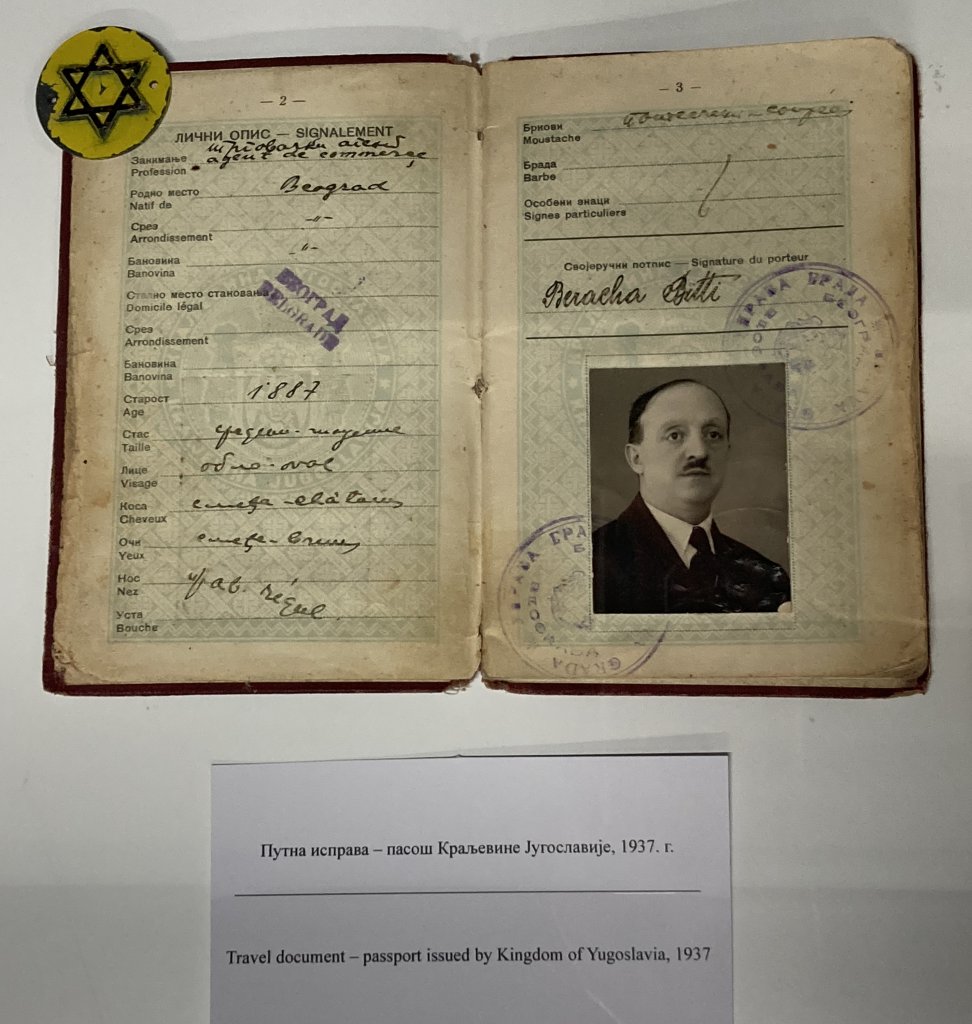 — 2 —
ЛИЧНИ ОПИС — SIGNALEMENT
трговачки агент
Занимање
agent de commerce
Profession
Родно место
Beograd
Natif de
Срез
-"-
Arrondissement
Бановина
-"-
Banovina
Стално место становања
БЕОГРАД
Domicile légal
BELGRADE
Срез
Arrondissement
Бановина
Banovina
Старост
1887
Age
Стас
Taille
Лице
обло-oval
Visage
Коса
смеђа
Cheveux
Очи
смеђе
Yeux
Нос
Nez
прав. régul.
Уста
Bouche
— 3 —
Бркови
Moustache
Брада
Barbe
Особени знаци
Signes particuliers
Својеручни потпис — Signature du porteur
Beracha Bitti
УПРАВА ГРАДА БЕОГРАДА
УПРАВА ГРАДА
Путна исправа – пасош Краљевине Југославије, 1937. г.
Travel document – passport issued by Kingdom of Yugoslavia, 1937